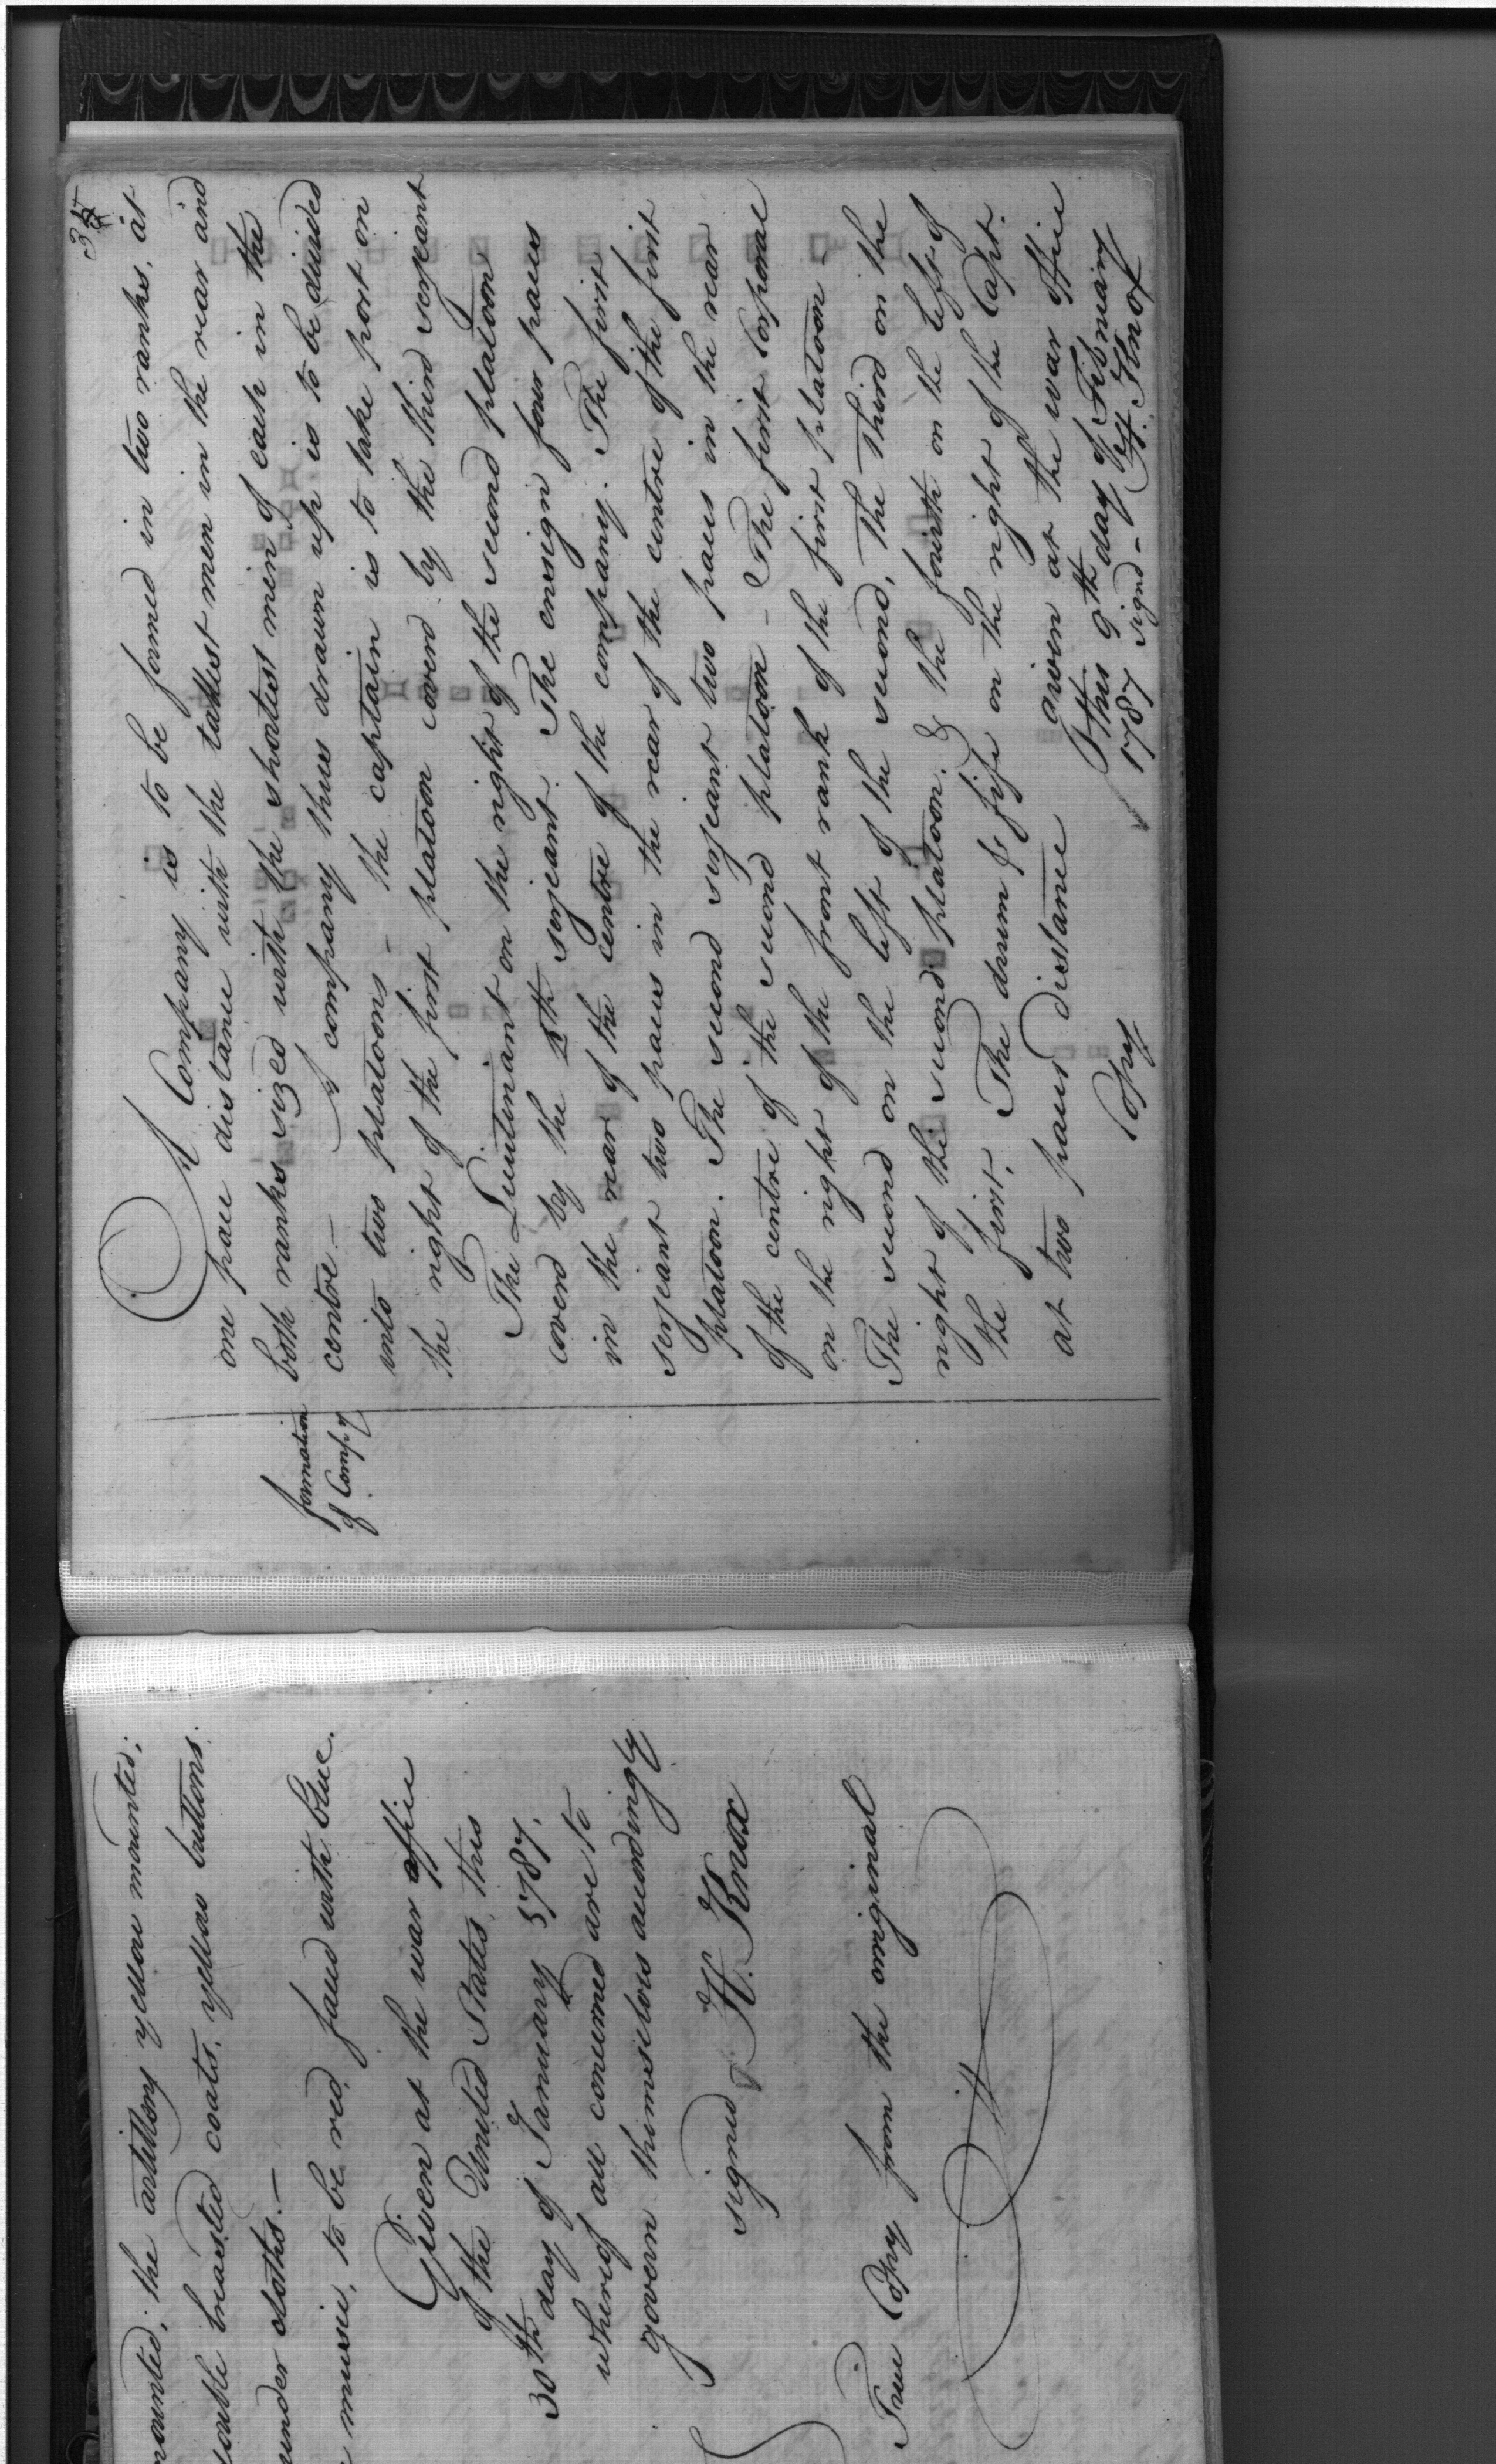 mounted; the artillery yellow mounted;
double breasted coats, yellow buttons.
under cloths. —
music, to be red, faced with blue.
Given at the war office
of the United States, this
30th day of January 1787.
whereof all concerned are to
govern themselves accordingly
signed H. Knox
True Copy from the original
35
formation
of Compy
A Company is to be formed in two rankes, at
one pace distance with the tallest men in the rear and
both rankes sized with the shortest men of each in the
centre — A company thus drawn up is to be divided
into two platoons — the captain is to take post on
the right of the first platoon coverd by the third serjeant
The Lieutenant on the right of the second platoon
coverd by the 4th serjeant. The ensign four paces
in the rear of the centre of the company. The first
serjeant two paces in the rear of the centre of the first
platoon. The second serjeant two paces in the rear
of the centre of the second platoon – The first Corporal
on the right of the front rank of the first platoon –
The second on the left of the second, The third on the
right of the second platoon. & the fourth on the left of
the first. The drum & fife on the right of the Capt.
at two paces distance
given at the war office
this 9th day of Febuary
1787 signd – H. Knox
Copy